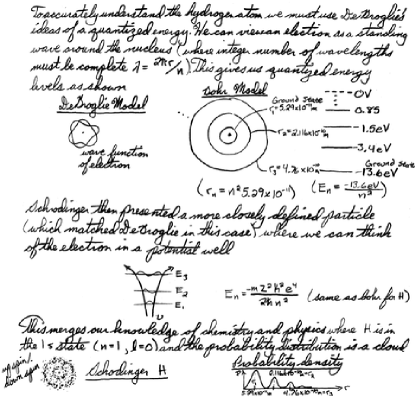 To accurately understand the hydrogen atom we must use DeBroglie's
ideas of a quantized energy. We can view an electron as a standing
wave around the nucleus (where integer number of wavelengths
must be complete λ = 2πr/n) This gives us quantized energy
levels as shown
DeBroglie Model
Bohr Model
wave function
of electron
Ground State
r₁=5.29x10⁻¹¹m
r₂=2.116x10⁻¹⁰m
r₃=4.76x10⁻¹⁰m
0V
0.85
1.5eV
3.4eV
Ground State
-13.6eV
(rₙ = n²5.29x10⁻¹¹)
(Eₙ = -13.6eV/n²)
Schrodinger then presented a more closely defined particle
(which matched DeBroglie in this case) where we can think
of the electron in a potential well
E₃
E₂
E₁
Eₙ = (same as bohr for H)
This merges our knowledge of chemistry and physics where H is in
the 1s state (n=1, l=0) and the probability distribution is a cloud
up spin/
down spin
Schodinger H
Probability density
r